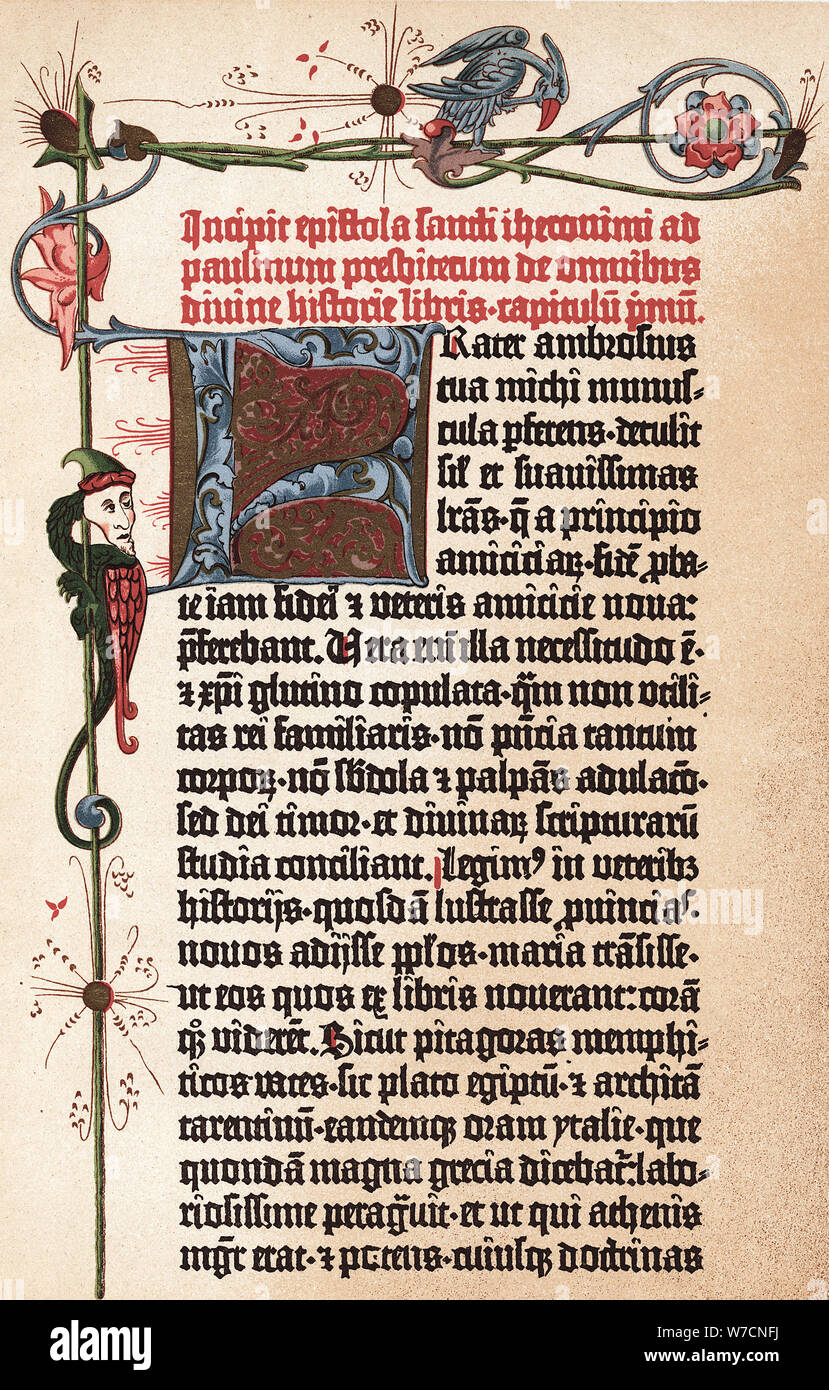 Incipit epistola sancti iheronimi ad
paulinum presbiterum de omnibus
divine historie libris·capitulū p̄mū.
FRater ambrosius
tua michi munus-
cula ꝑferens·detulit
sil̄ et suavissimas
lr̄as·q̄ a principio
amiciciaꝝ·fidē ꝓba-
te iam fidei ⁊ veteris amicicie nova:
p̄ferebant. Vera eni illa necessitudo ē·
⁊ xp̄i glutino copulata·q̄m non utili-
tas rei familiaris·nō p̄ncia tantum
corpoꝝ·nō sb̄dola ⁊ palpās adulacō·
sed dei timor·et divinaꝝ scripturarū
studia conciliant. Legimꝰ in veteribꝫ
historijs·quosdā lustrasse ꝓuincias·
novos adijsse ppl̄os·maria trāsisse·
ut eos quos ex libris noverant: corā
qꝫ viderēt. Sicut pitagoras memphi-
ticos vates·sic plato egiptū·⁊ architā
tarentinū·eandemqꝫ oram ytalie·que
quondā magna grecia dicebat̄: labo-
riosissime peragrauit·et ut qui athenis
mgr̄ erat·⁊ potens·cuiusqꝫ doctrinas
alamy
Image ID: W7CNFJ
www.alamy.com